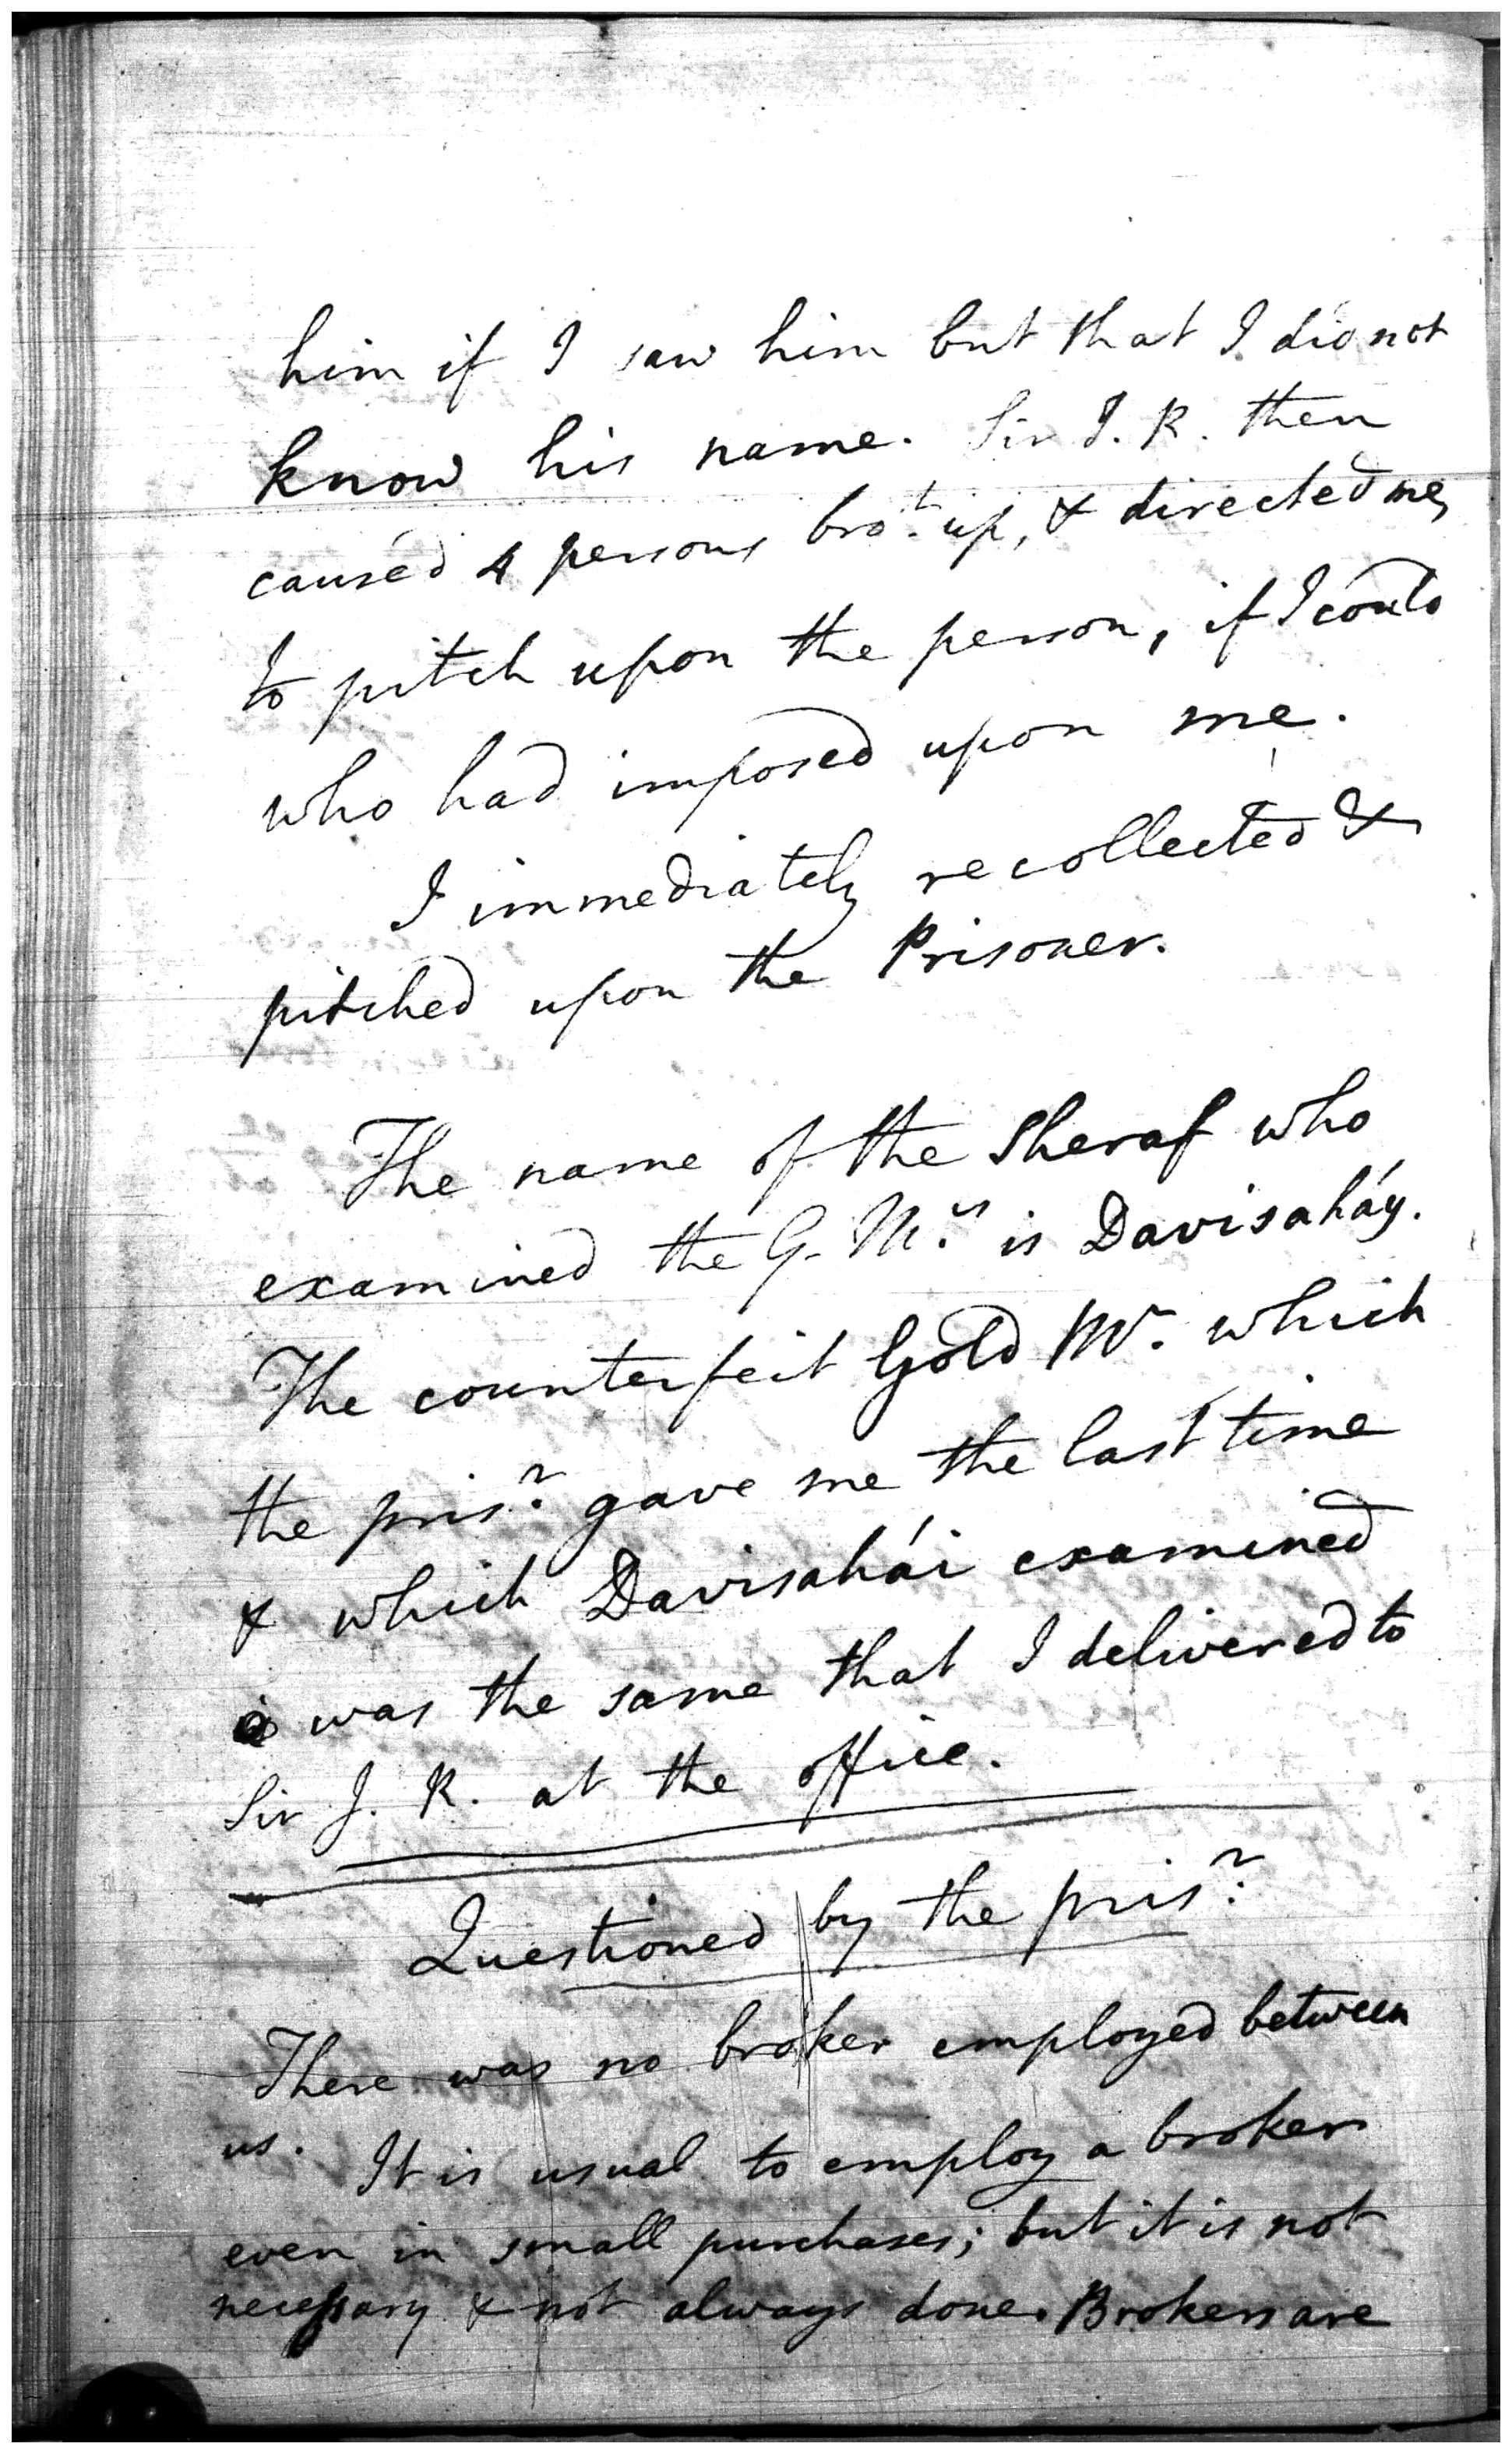 him if I saw him but that I did not
know his name. Sir J. R. then
caused 4 persons bro.t up, & directed me,
to pitch upon the person, if I could
who had imposed upon me.
I immediately recollected &
pitched upon the Prisoner.
The name of the Sheraf who
examined the G. M.rs is Davisaháy.
The counterfeit Gold Mr. which
the pris.r gave me the last time
& which Davisahái examined
was the same that I delivered to
Sir J. R. at the office.
Questioned by the pris.r
There was no broker employed between
us. It is usual to employ a broker
even in small purchases; but it is not
necessary & not always done. Brokers are